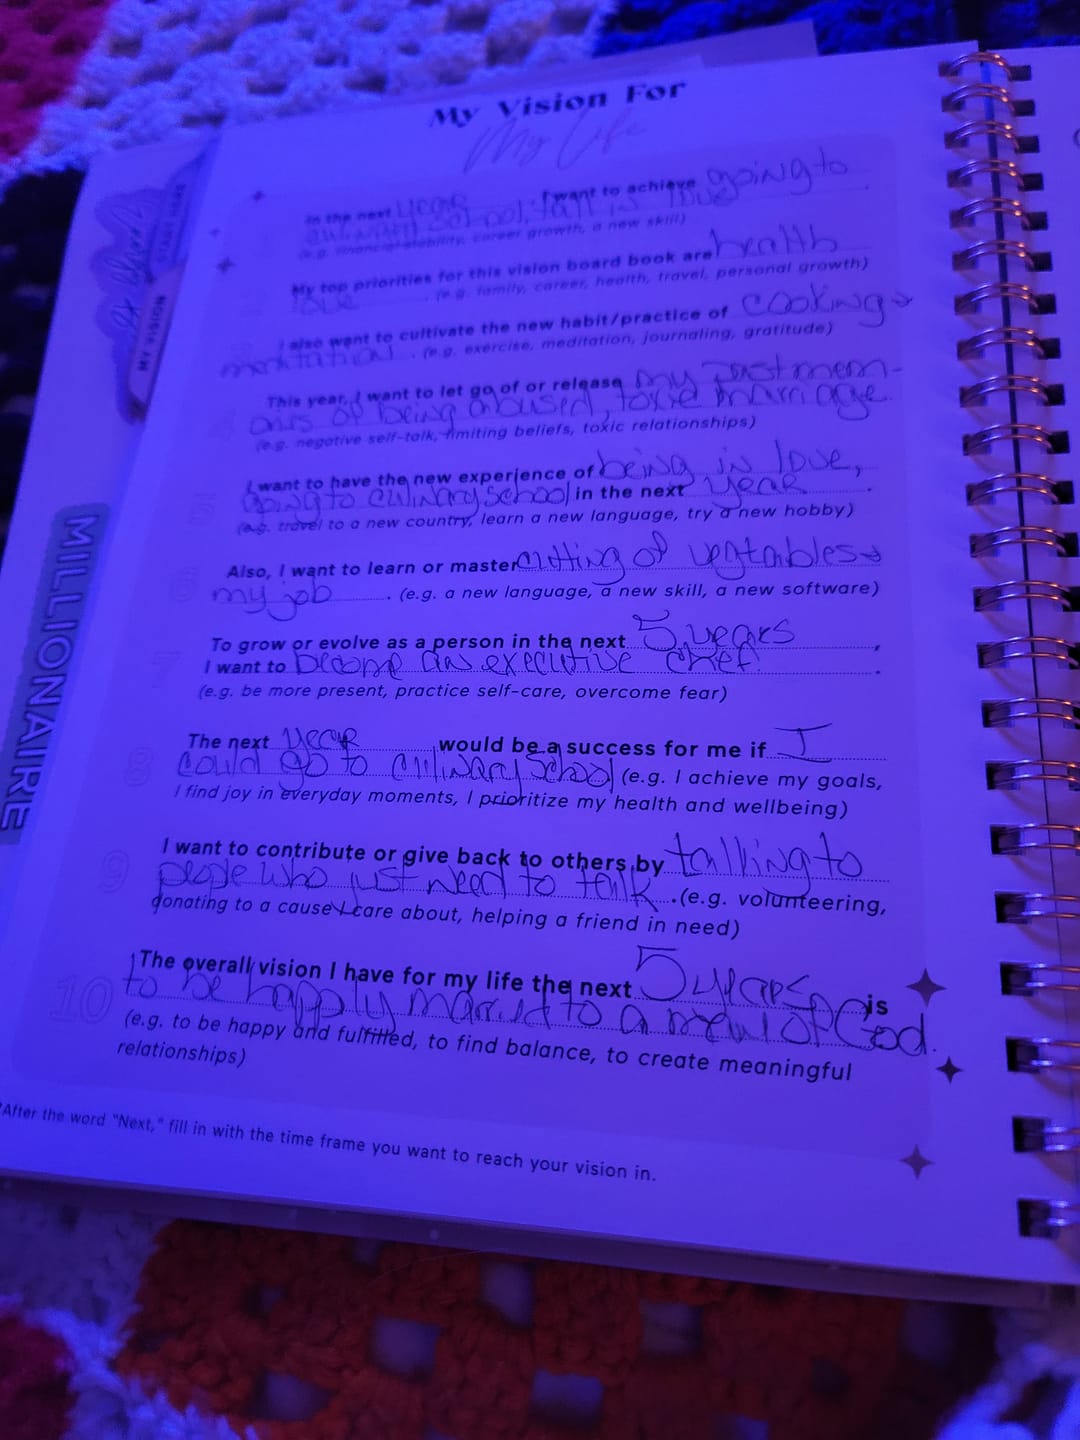 My Vision For
My Life
In the next year I want to achieve going to
culinary school, fall in love
(e.g. financial stability, career growth, a new skill)
My top priorities for this vision board book are health
love . (e.g. family, career, health, travel, personal growth)
I also want to cultivate the new habit/practice of cooking
meditation . (e.g. exercise, meditation, journaling, gratitude)
This year, I want to let go of or release my past mem-
of being abused, toxic marriage.
(e.g. negative self-talk, limiting beliefs, toxic relationships)
5
I want to have the new experience of being in love,
going to culinary school in the next year .
(e.g. travel to a new country, learn a new language, try a new hobby)
6
Also, I want to learn or master cutting of vegtables
my job . (e.g. a new language, a new skill, a new software)
7
To grow or evolve as a person in the next 5 years ,
I want to become an executive chef .
(e.g. be more present, practice self-care, overcome fear)
8
The next year would be a success for me if I
could go to culinary school (e.g. I achieve my goals,
I find joy in everyday moments, I prioritize my health and wellbeing)
9
I want to contribute or give back to others by talking to
people who just need to talk .(e.g. volunteering,
donating to a cause I care about, helping a friend in need)
10
The overall vision I have for my life the next 5 years is
to be happily married to a of God.
(e.g. to be happy and fulfilled, to find balance, to create meaningful
relationships)
*After the word "Next," fill in with the time frame you want to reach your vision in.
START HERE
MY VISION
MILLIONAIRE